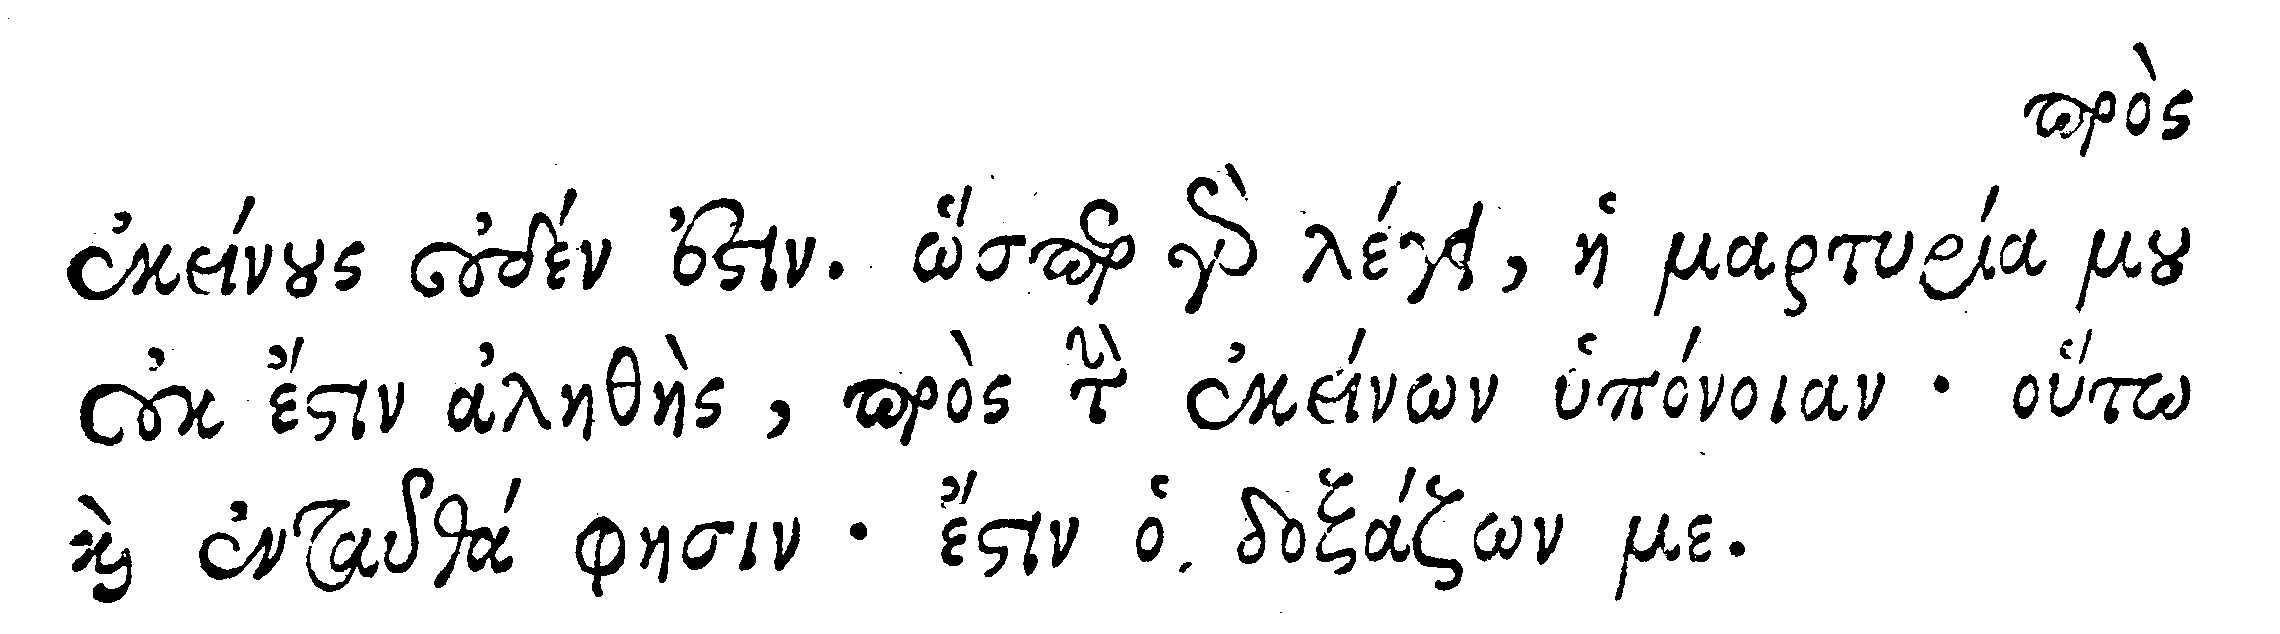 πρὸς
ἐκείνους οὐδέν ἐστιν. ὥσπερ γὰρ λέγει, ἡ μαρτυρία μου
οὐκ ἔστιν ἀληθὴς, πρὸς τὴν ἐκείνων ὑπόνοιαν · οὕτω
καὶ ἐνταῦθά φησιν · ἔστιν ὁ δοξάζων με.